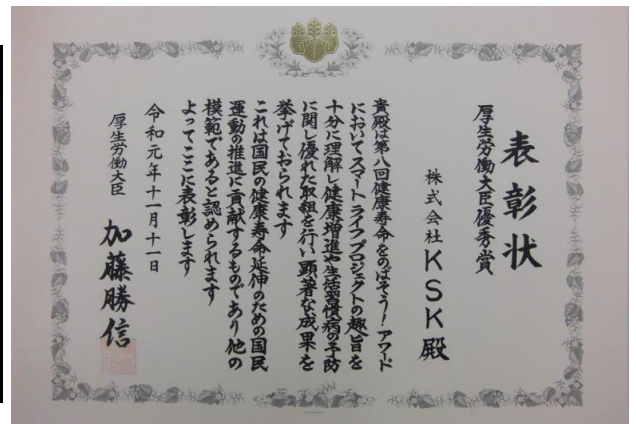 表彰状
厚生労働大臣優秀賞
株式会社KSK殿
貴殿は第八回健康寿命をのばそう!アワード
においてスマートライフプロジェクトの趣旨を
十分に理解し健康増進や生活習慣病の予防
に関し優れた取組を行い顕著な成果を
挙げておられます
これは国民の健康寿命延伸のための国民
運動の推進に貢献するものであり他の
模範であると認められます
よってここに表彰します
令和元年十一月十一日
厚生労働大臣
加藤勝信